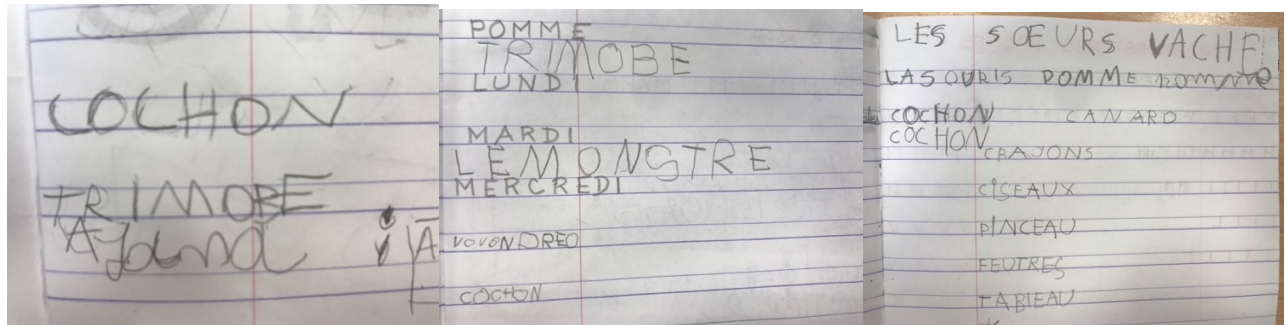 COCHON
TRIMOBE
POMME
TRIMOBE
LUNDI
MARDI
LEMONSTRE
MERCREDI
VOVONDREO
COCHON
LES SOEURS VACHE
LA SOURIS POMME pomme
COCHON CANARD
COCHON
CRAYONS
CISEAUX
PINCEAU
FEUTRES
TABIEAU